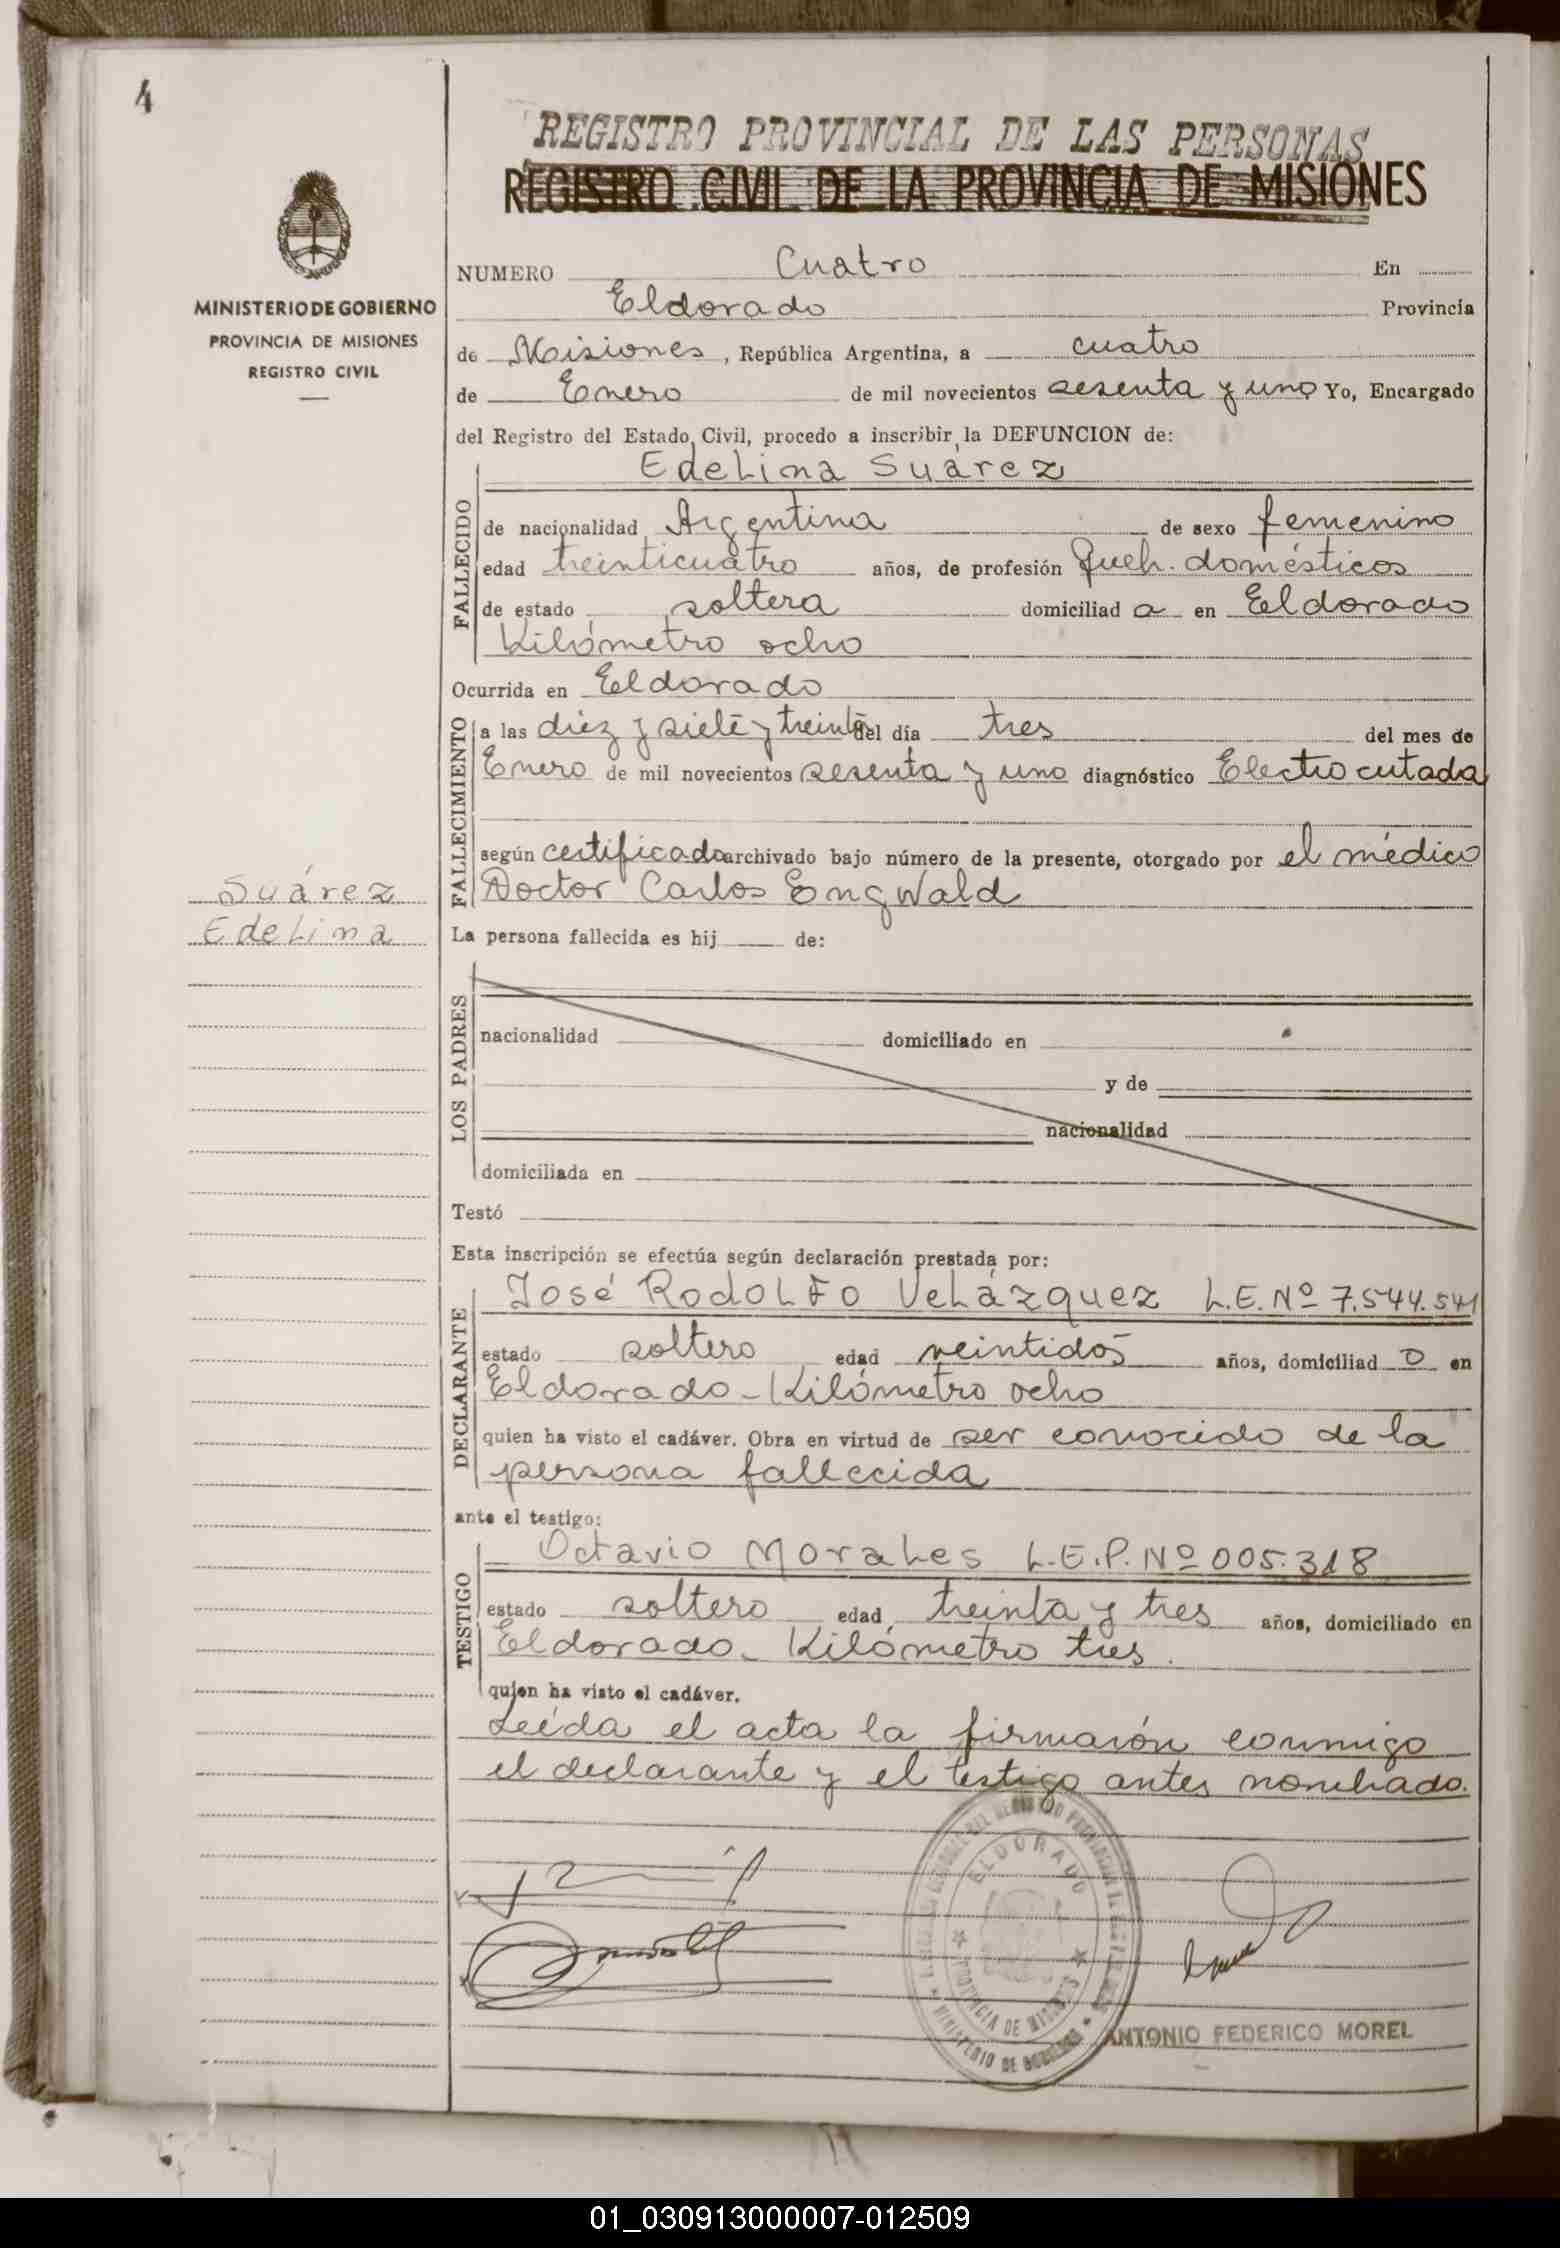 4
MINISTERIO DE GOBIERNO
PROVINCIA DE MISIONES
REGISTRO CIVIL
REGISTRO PROVINCIAL DE LAS PERSONAS
REGISTRO CIVIL DE LA PROVINCIA DE MISIONES
NUMERO Cuatro En
Eldorado Provincia
de Misiones, República Argentina, a cuatro
de Enero de mil novecientos sesenta y uno Yo, Encargado
del Registro del Estado Civil, procedo a inscribir la DEFUNCION de:
Edelina Suárez
FALLECIDO
de nacionalidad Argentina de sexo femenino
edad treinticuatro años, de profesión Queh. domésticos
de estado soltera domiciliad a en Eldorado
Kilómetro ocho
Ocurrida en Eldorado
FALLECIMIENTO
a las diez y siete y treinta del día tres del mes de
Enero de mil novecientos sesenta y uno diagnóstico Electrocutada
según certificado archivado bajo número de la presente, otorgado por el médico
Doctor Carlos Engwald
Suárez
Edelina
La persona fallecida es hij de:
LOS PADRES
nacionalidad domiciliado en
y de
nacionalidad
domiciliada en
Testó
Esta inscripción se efectúa según declaración prestada por:
José Rodolfo Velázquez L.E. Nº 7.544.541
DECLARANTE
estado soltero edad veintidos años, domiciliad o en
Eldorado - Kilómetro ocho
quien ha visto el cadáver. Obra en virtud de ser conocido de la
persona fallecida
ante el testigo:
Octavio Morales L.E.P. Nº 005.318
TESTIGO
estado soltero edad treinta y tres años, domiciliado en
Eldorado - Kilómetro tres.
quien ha visto el cadáver.
Leída el acta la firmarón conmigo
el declarante y el testigo antes nombrado.
ELDORADO
PROVINCIA DE MISIONES
MINISTERIO DE GOBIERNO
ANTONIO FEDERICO MOREL
01_030913000007-012509